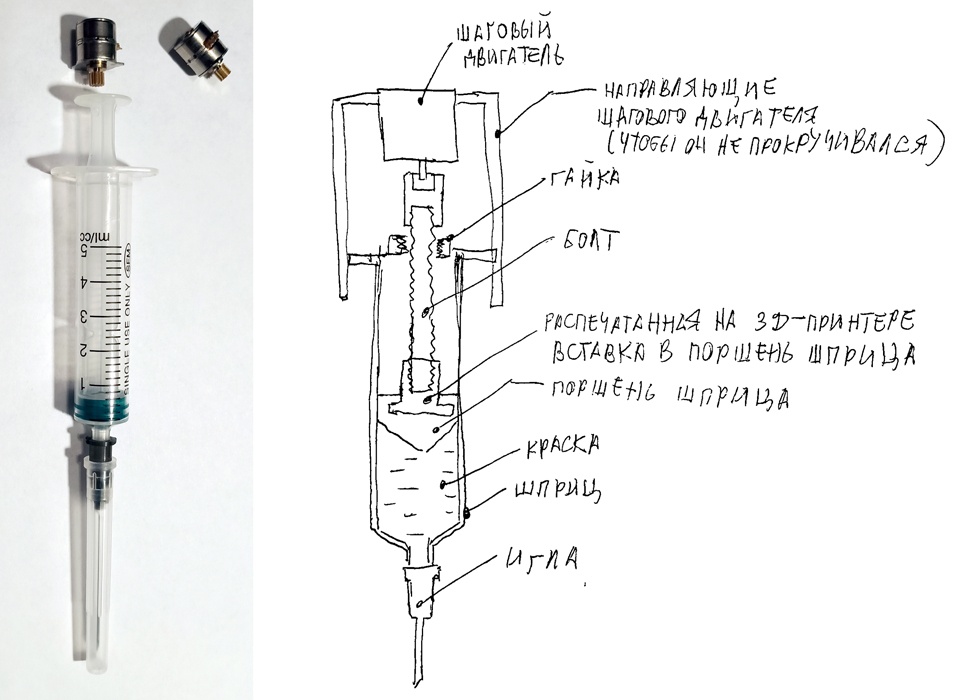 ml/cc
5
4
3
2
1
SINGLE USE ONLY
ШАГОВЫЙ
ДВИГАТЕЛЬ
НАПРАВЛЯЮЩИЕ
ШАГОВОГО ДВИГАТЕЛЯ
(ЧТОБЫ ОН НЕ ПРОКРУЧИВАЛСЯ)
ГАЙКА
БОЛТ
РАСПЕЧАТАННАЯ НА 3D-ПРИНТЕРЕ
ВСТАВКА В ПОРШЕНЬ ШПРИЦА
ПОРШЕНЬ ШПРИЦА
КРАСКА
ШПРИЦ
ИГЛА